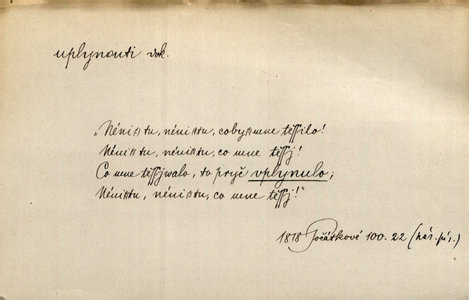 uplynouti dok.
„Nénistu, nénistu, cobysmne těssilo!
Nénistu, nénistu, co mne těssj!
Co mne těssjwalo, to pryč vplynulo,
Nénistu, nénistu, co mne těssj!“
1818 Počátkové 100. 22 (nás. pís.)